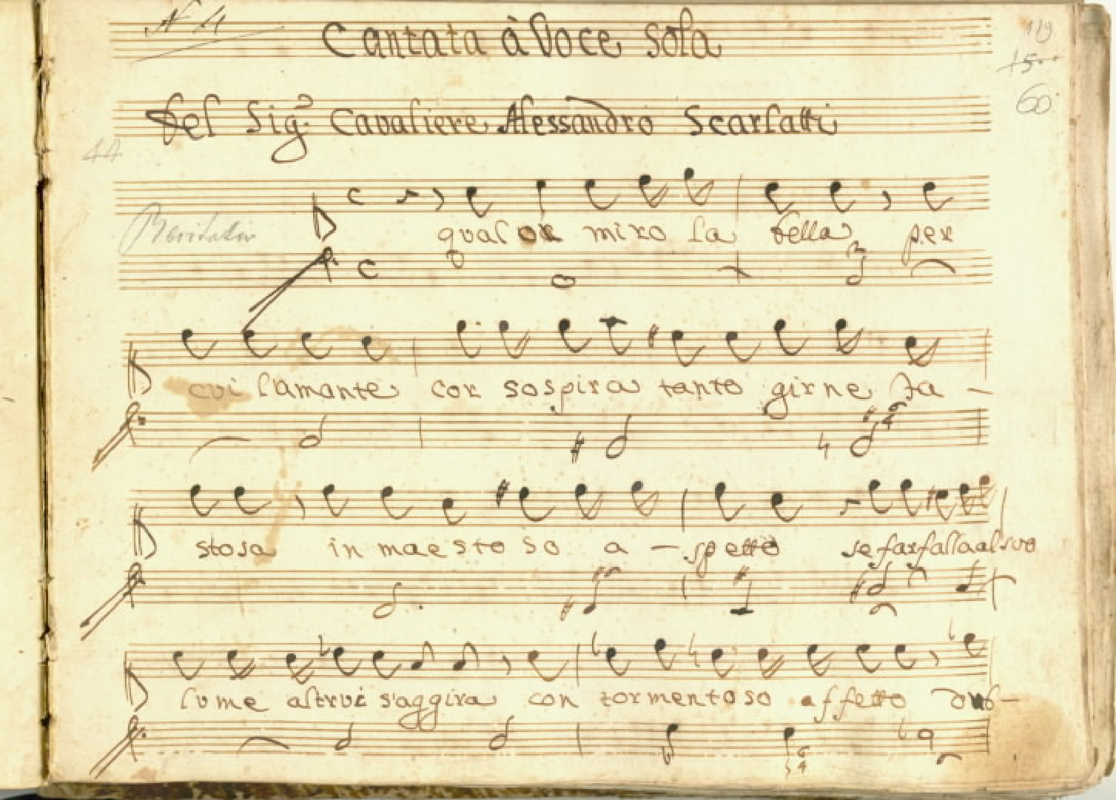 N 4
Cantata à Voce Sola
119
15
60
Del Sig.re Cavaliere Alessandro Scarlatti
44
qual or miro la bella per
cui l'amante cor sospira tanto girne fa-
stosa in maestoso a-spetto se farfalla al suo
lume altrui s'aggira con tormentoso affetto dub-